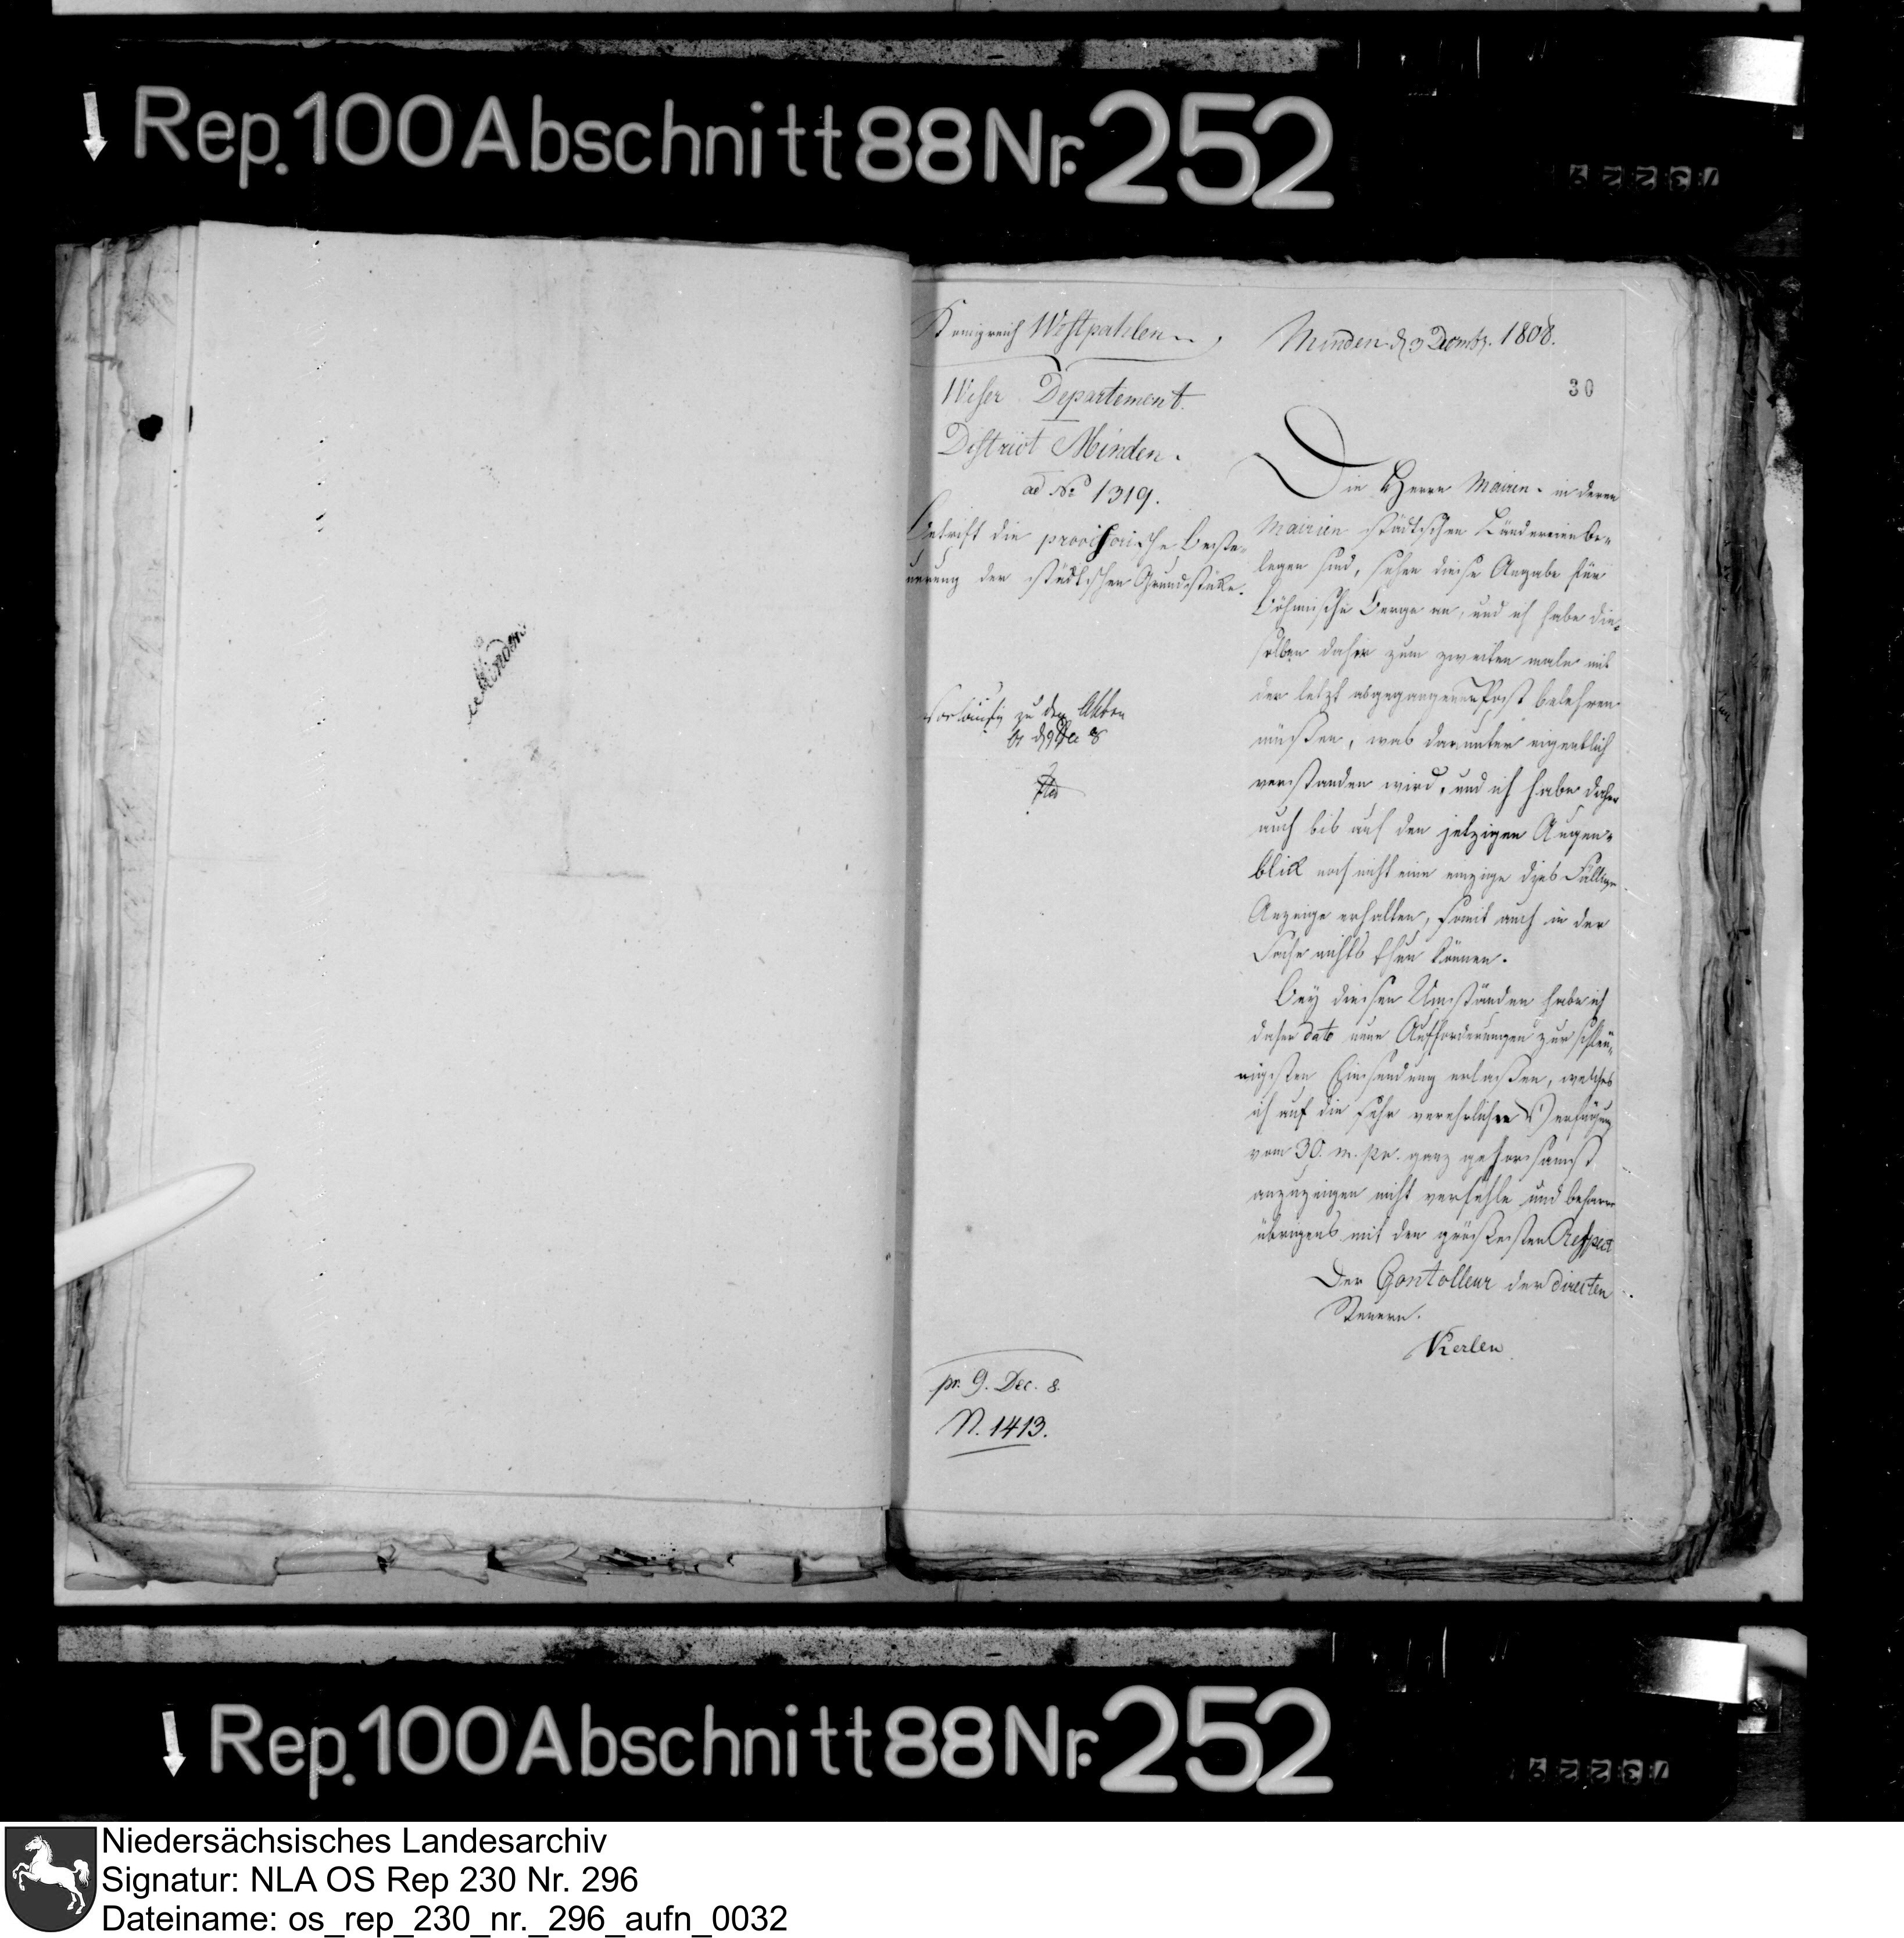 Rep. 100 Abschnitt 88 Nr. 252
73229
Minden
Königreich Westpahlen
Weser Departement.
District Minden.
ad No 1319.
Betrift die provisorische Besteu-
uerung der städtschen Grundstüke.
Vorläufig zu den Akten
d 9 Dec 8
pr. 9. Dec. 8.
N. 1413.
Minden d 3 Decmbr. 1808.
30
Die Herrn Mairen in deren
Mairien städtschen Ländereien be-
legen sind, sehen diese Angabe für
Böhmische Berge an, und ich habe die-
selben daher zum zweiten male mit
der letzt abgegangenen Post belehren
müßen, was darunter eigentlich
verstanden wird, und ich habe daher
auch bis auf den jetzigen Augen-
blick noch nicht eine einzige dies Fällige
Anzeige erhalten, somit auch in der
Sache nichts thun können.
Bey diesen Umständen habe ich
daher dato neue Aufforderungen zur schleu-
nigsten Einsendung erlaßen, welches
ich auf die sehr verehrliche Verfügung
vom 30. m. pr. ganz gehorsamst
anzuzeigen nicht verfehle und beharre
übrigens mit den größesten Respect
Der Contolleur der directen
Steuern.
Kerlen
Rep. 100 Abschnitt 88 Nr. 252
73229
Niedersächsisches Landesarchiv
Signatur: NLA OS Rep 230 Nr. 296
Dateiname: os_rep_230_nr._296_aufn_0032